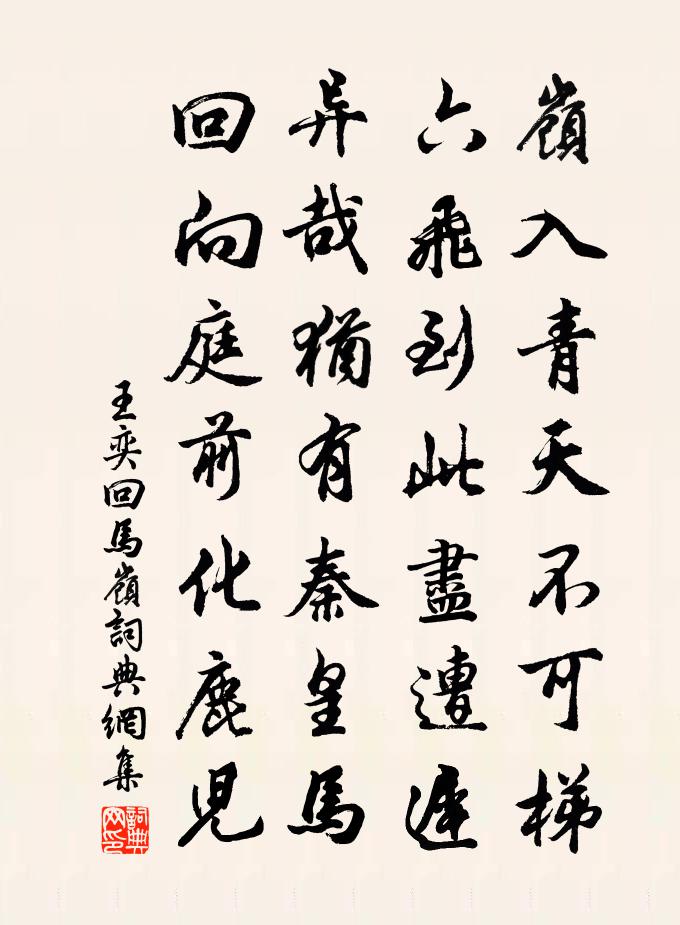 嶺入青天不可梯
六飛到此盡遭遲
异哉猶有秦皇馬
回向庭前化鹿児
王奕回馬嶺詞典網集
詞典網印